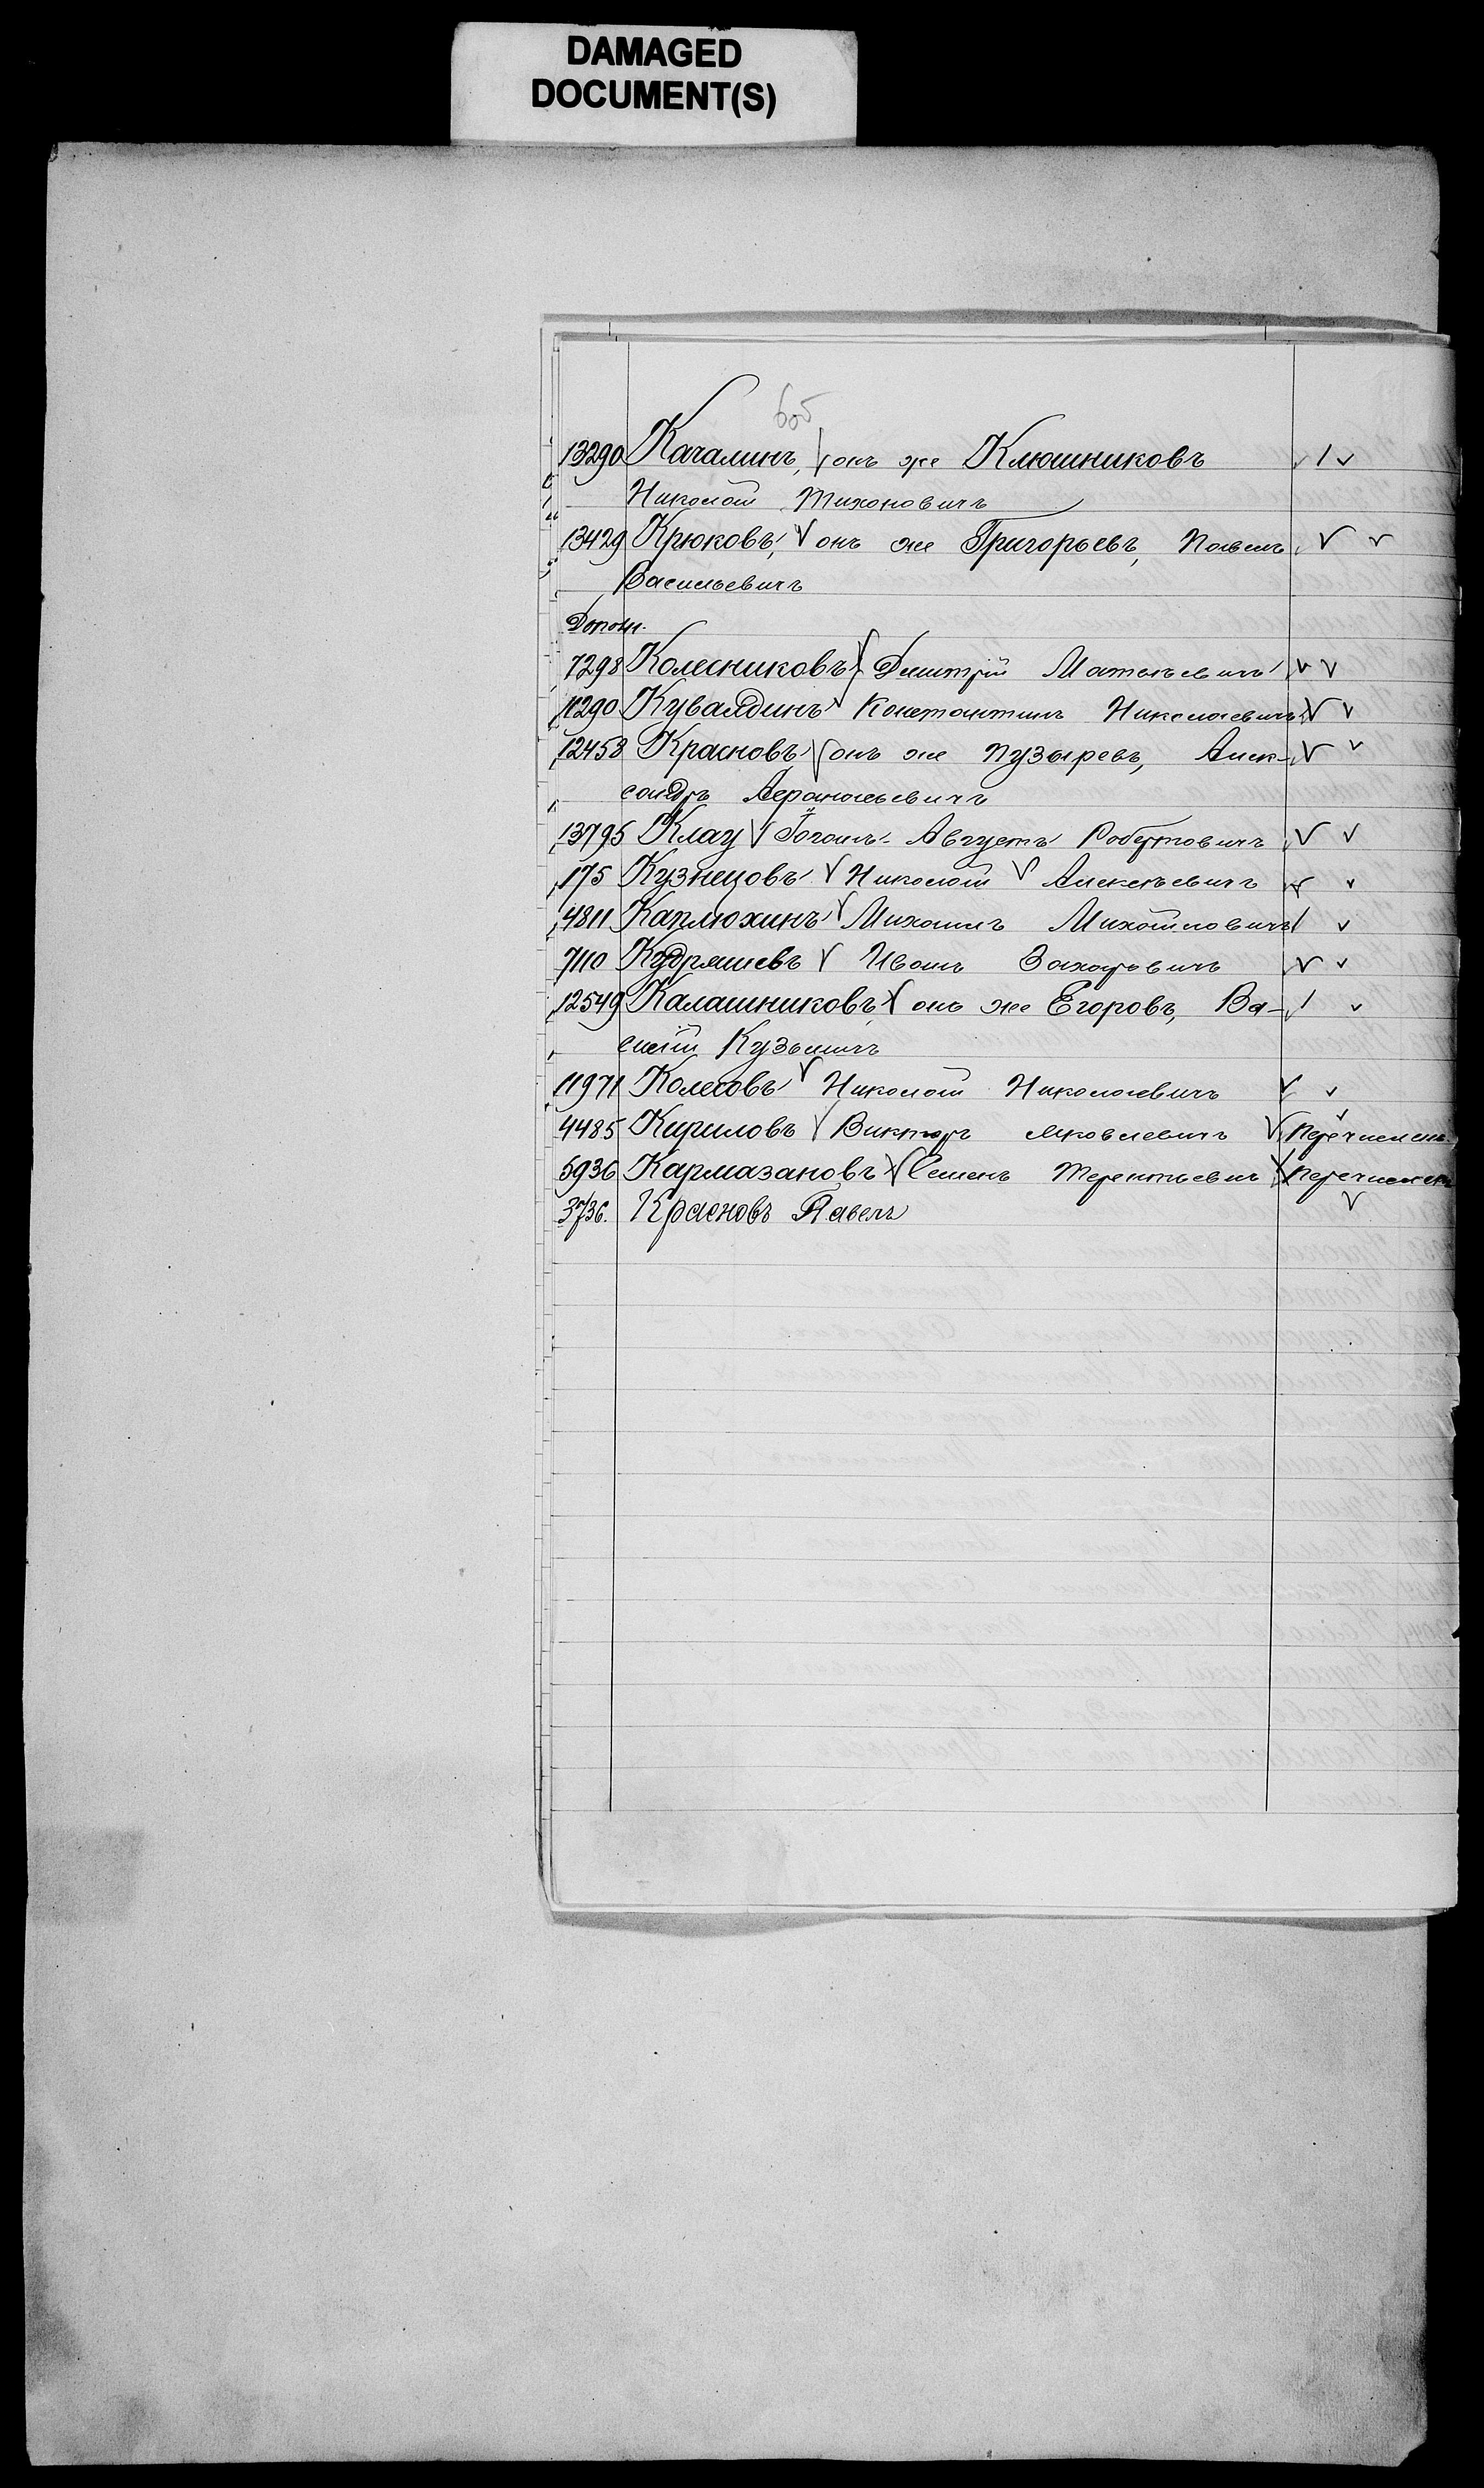 DAMAGED
DOCUMENT(S)
13290 Качалинъ, онъ же Клюшниковъ
Николай Тихоновичъ
13429 Крюковъ, онъ же Григорьевъ, Павелъ
Васильевичъ
Дополн.
7298 Колесниковъ Дмитрій Матвѣевичъ
11290 Кувалдинъ Константинъ Николаевичъ
12458 Красновъ онъ же Пузыревъ, Алек-
сандръ Аѳанасьевичъ
13795 Клау Іоганъ-Августъ Робертовичъ
175 Кузнецовъ Николай Алексѣевичъ
4811 Каплюхинъ Михаилъ Михайловичъ
7110 Кудряшевъ Иванъ Захаровичъ
12549 Калашниковъ, онъ же Егоровъ, Ва-
силій Кузьмичъ
11971 Колесовъ Николай Николаевичъ
4485 Кириловъ Викторъ Яковлевичъ Перечислен.
5936 Кармазановъ Семенъ Терентьевичъ Перечислен
3736. Красновъ Павелъ